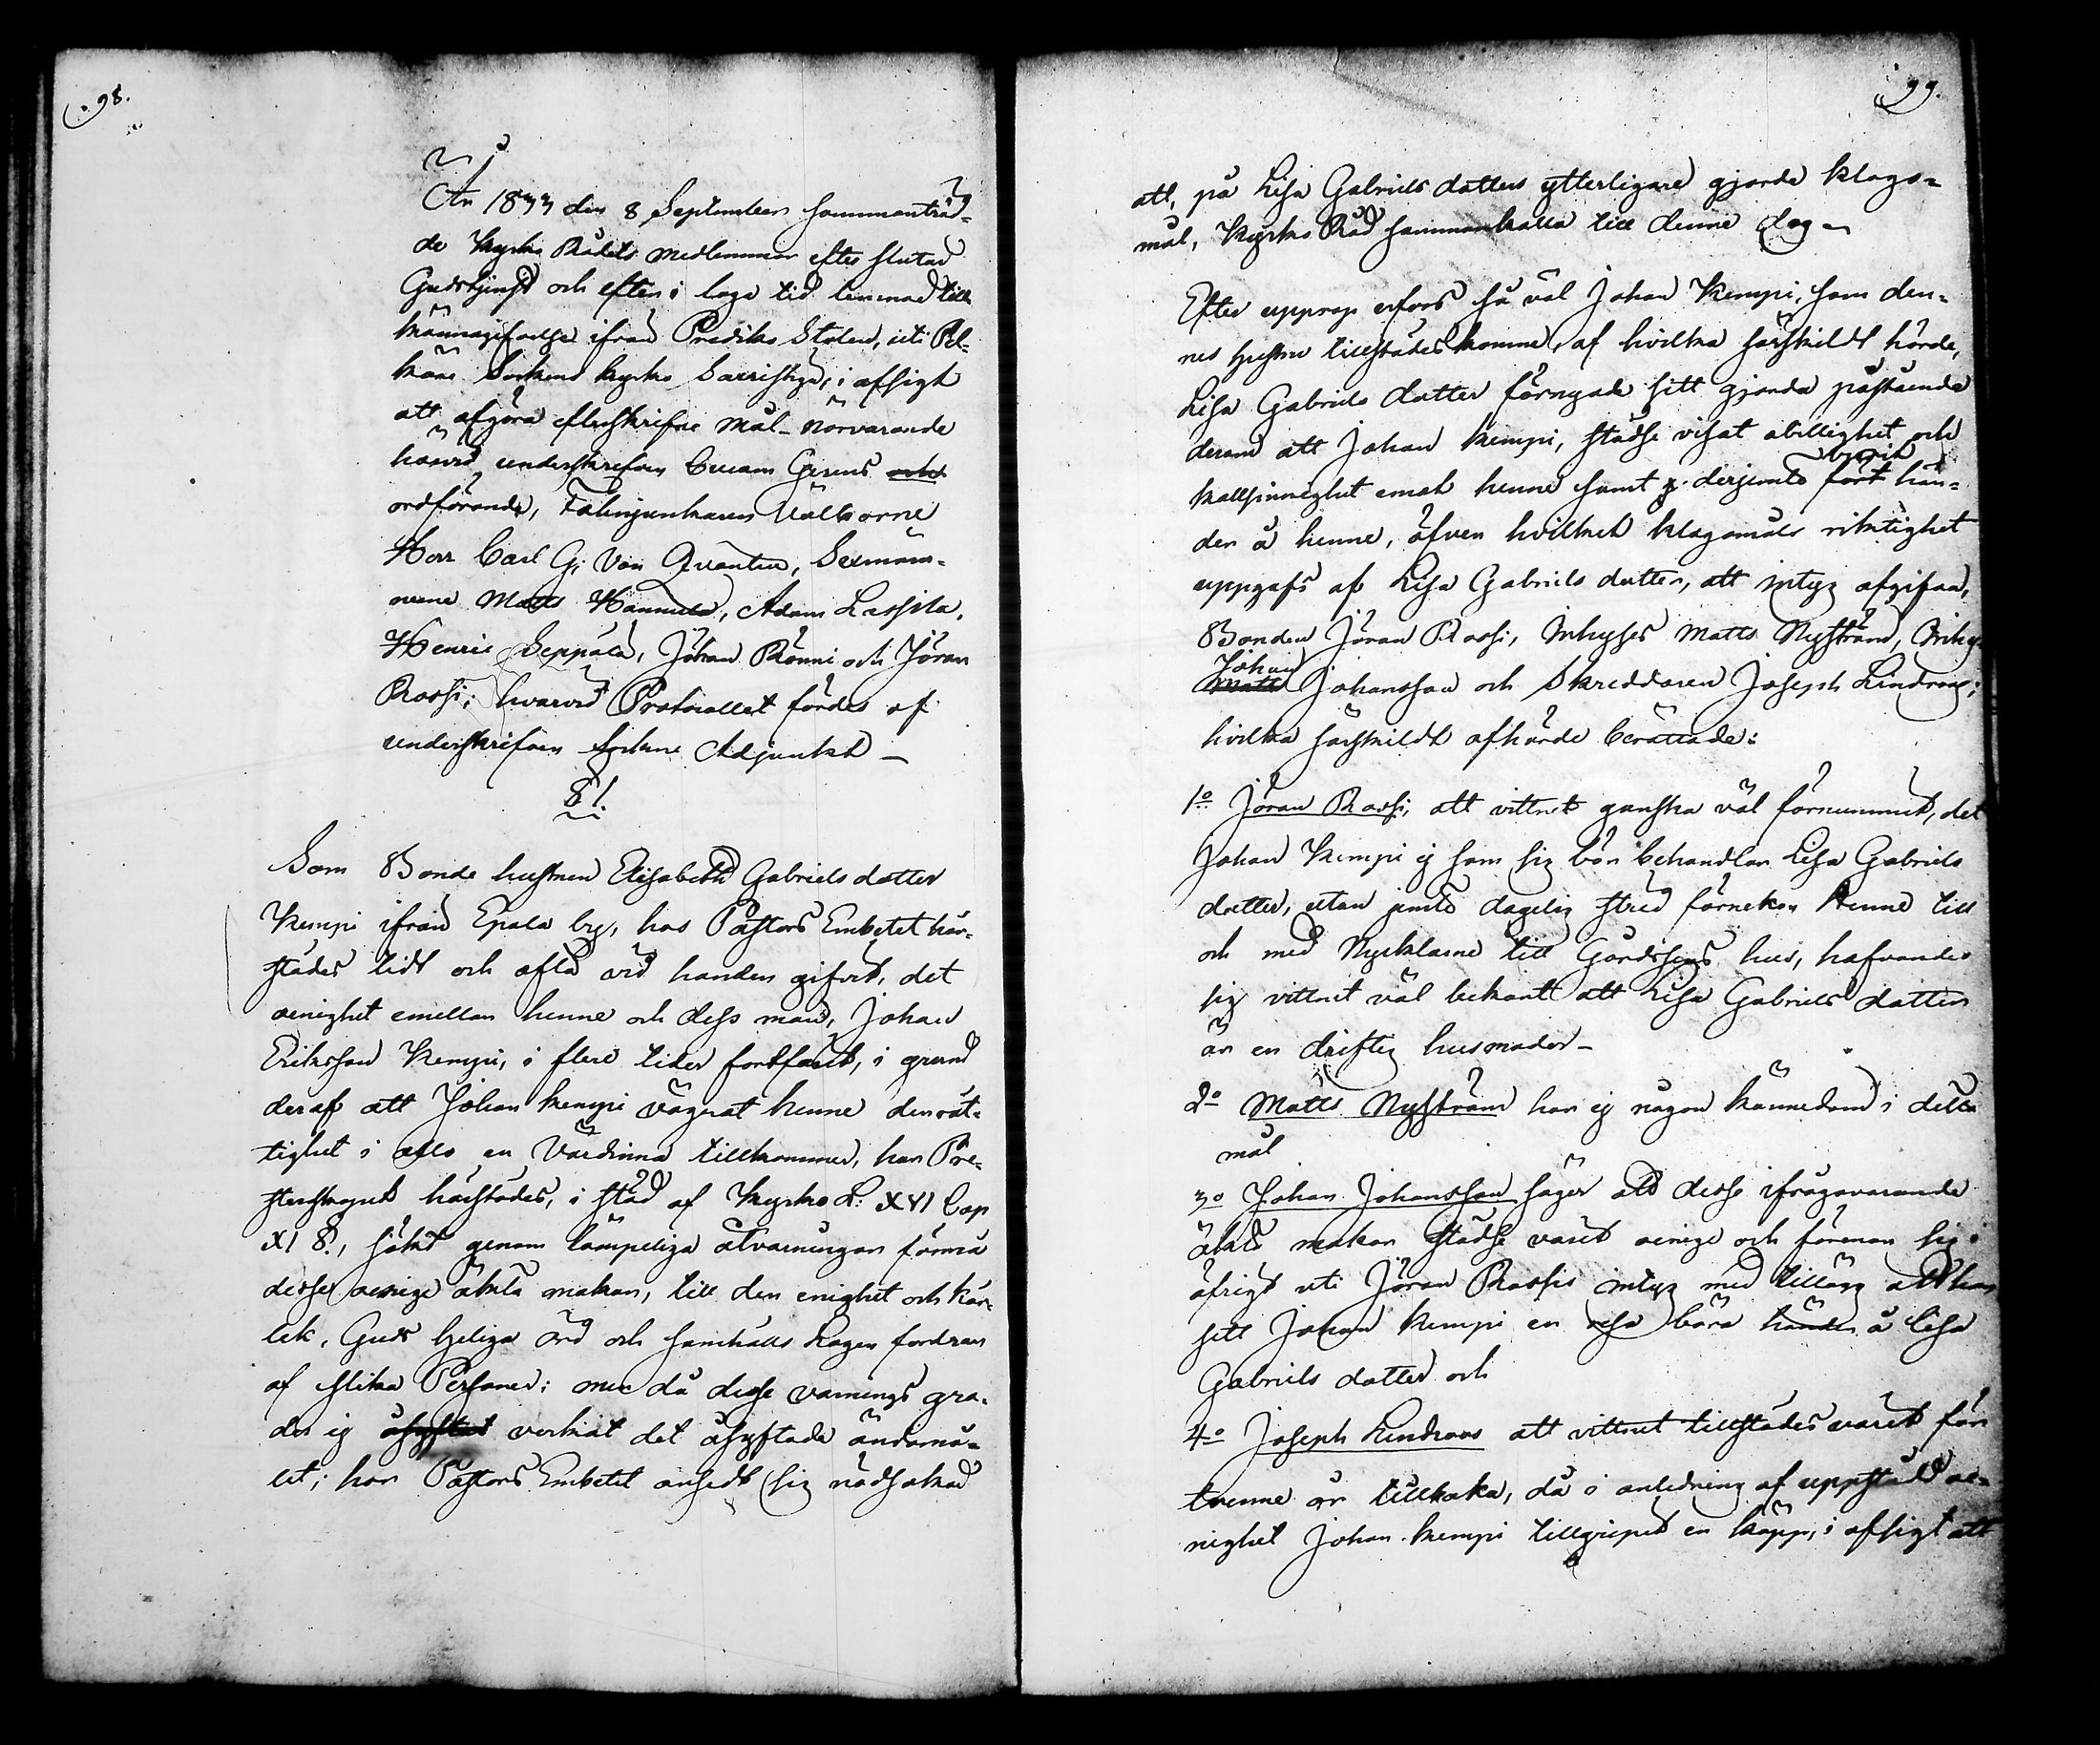 98.
År 1833 den 8 September sammanträd-
de Kyrko Rådets medlemmar efter slutad
Gudstjenst och efter i laga tid lemnad till
kännagifvelse ifrån Prediko Stolen, uti Pel-
käne Sockens kyrko Sacristiga, i afsigt
att afgöra efterskrifne mål - närvarande
härvid underskrefven Curam Gerens och
ordförande, Välborne
Herr Carl G. Von Qvanten, Sexmän-
nerne Matts Hannula, Adam Lassila,
Henric Seppälä, Johan Rönni och Jöran
Rossi; hvarvid Protocollet fördes af
underskrifven Sockne Adjunkt -
§ 1.
Som Bonde hustrun Elisabeth Gabriels dotter
Kempi ifrån Epala by, hos Pastors Embetet här-
städes tidt och ofta vid handen gifvit, det
oenighet emellan henne och dess man, Johan
Eriksson Kempi, i flere tider fortfarit, i grund
deraf att Johan Kempi vägrat henne den rät-
tighet i allo en Värdinna tillkommer, har Pre-
sterskapet härstädes, i stöd af Kyrko L: XVI Cap
XI §., sökt genom lämpeliga åtvarningar förmå
desse oenige äkta makar, till den enighet och kär-
lek, Guds heliga Ord och Samhälls Lagen fordrar
af slika Personer; men då desse varnings gra-
der ej åsyftat verkat det åsyftade ändamå-
let; har Pastors Embetet ansedt sig nödsakad
99.
att, på Lisa Gabriels dotters ytterligare gjorde klago-
mål, Kyrko Råd sammankalla till denne dag -
Efter upprop erfors så väl Johan Kempi, som den-
nes hustru tillstädeskomne, af hvilka särskildt hörde,
Lisa Gabriels dotter förnyade sitt gjorda påstående
derom att Johan Kempi, städse visat obillighet och
kallsinnighet emot henne samt derjemte fört hän-
der å henne, äfven hvilket klagomåls riktighet
uppgafs af Lisa Gabriels dotter, att intyg afgifva,
Bonden Jöran Rossi, Inhyses Matts Nyström, Inhys
Johan
Matts Johansson och Skreddaren Joseph Lindroos;
hvilka särskildt afhörde berättade:
1o Jöran Rossi, att vittnet ganska väl förnummit, det
Johan Kempi ej som sig bör behandlar Lisa Gabriels
dotter, utan jemte dagelig strid förnekar henne till
och med Nycklarne till Gårdssens hus, hafvandes
sig vittnet väl bekant att Lisa Gabriels dotter
är en driftig husmoder -
2o Matts Nyström har ej någon kännedom i detta
mål
3o Johan Johansson säger att desse ifrågavarande
äkta makar städse varit oenige och förenar sig i
öfrigt uti Jöran Rossis intyg med tillägg att han
sett Johan Kempi en resa bära händer å Lisa
Gabriels dotter och
4o Joseph Lindroos att vittnet tillstädes varit för
trenne år tillbaka, då i anledning af uppståld oe-
nighet Johan Kempi tillgripit en käpp, i afsigt att